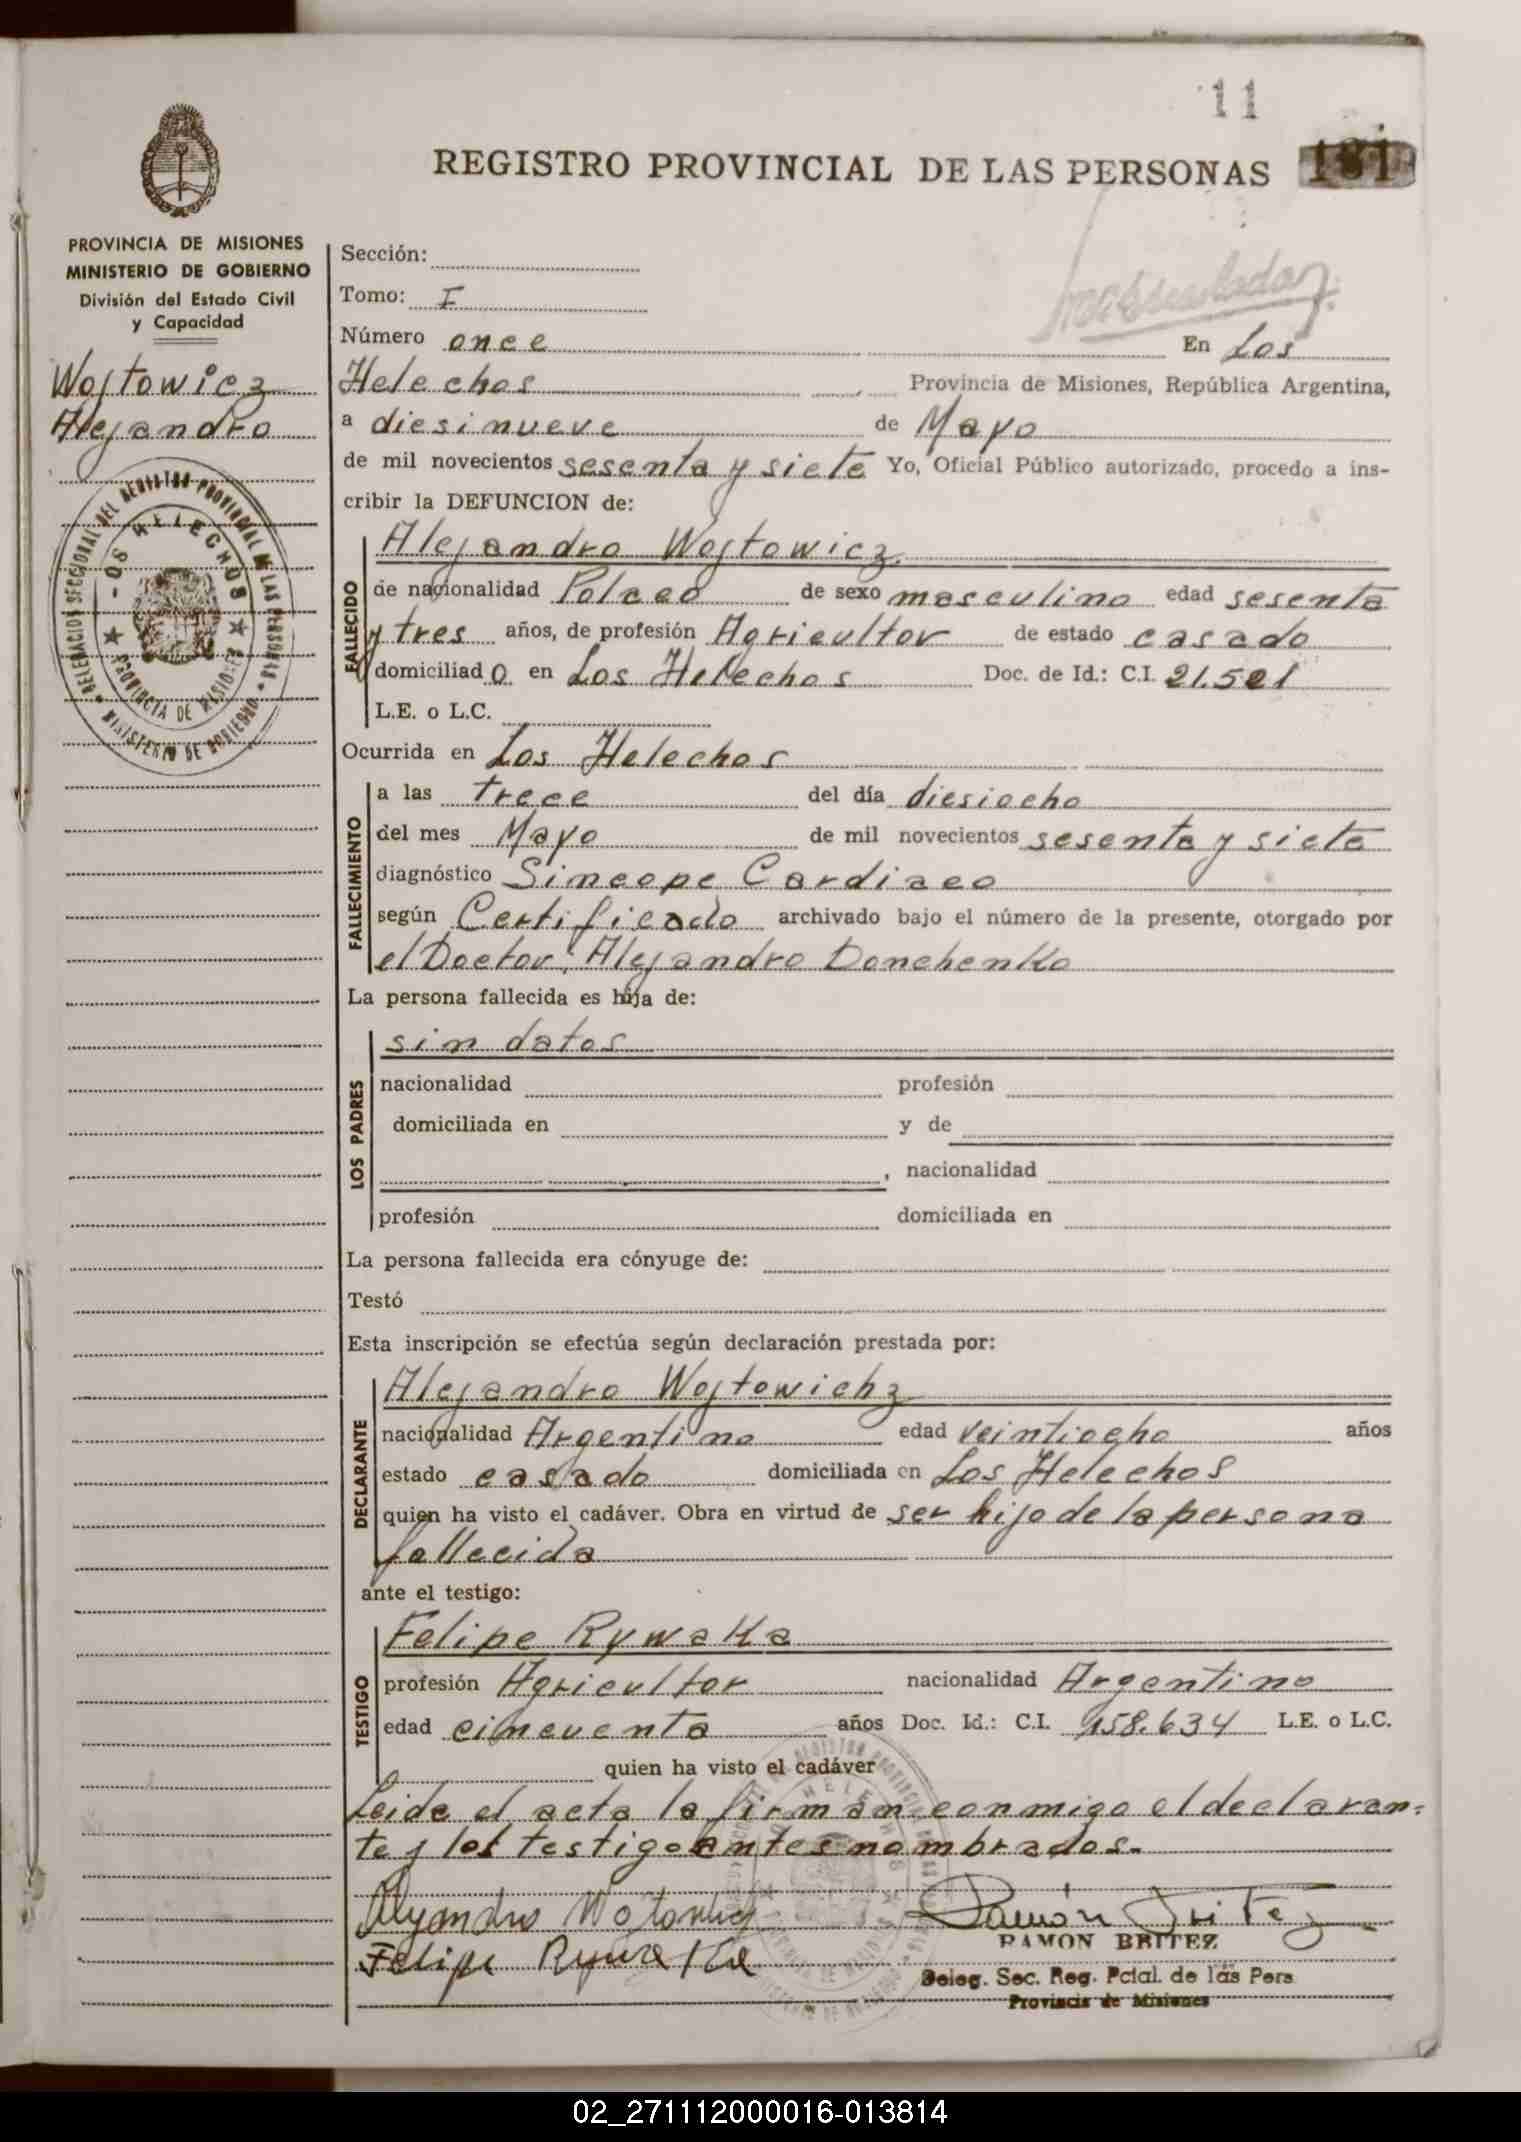 11
REGISTRO PROVINCIAL DE LAS PERSONAS
181
PROVINCIA DE MISIONES
MINISTERIO DE GOBIERNO
División del Estado Civil
y Capacidad
Wojtowicz
Alejandro
DELEGACION SECCIONAL DEL REGISTRO PROVINCIAL DE LAS PERSONAS
LOS HELECHOS
PROVINCIA DE MISIONES
MINISTERIO DE GOBIERNO
Sección:
Tomo: I
Número once En Los
Helechos Provincia de Misiones, República Argentina,
a diesinueve de Mayo
de mil novecientos sesenta y siete Yo, Oficial Público autorizado, procedo a ins-
cribir la DEFUNCION de:
FALLECIDO
Alejandro Wojtowicz
de nacionalidad Polaco de sexo masculino edad sesenta
y tres años, de profesión Agricultor de estado casado
domiciliado en Los Helechos Doc. de Id.: C.I. 21.521
L.E. o L.C.
Ocurrida en Los Helechos
FALLECIMIENTO
a las trece del día diesiocho
del mes Mayo de mil novecientos sesenta y siete
diagnóstico Sincope Cardiaco
según Certificado archivado bajo el número de la presente, otorgado por
el Doctor: Alejandro Donchenko
La persona fallecida es hija de:
LOS PADRES
sin datos
nacionalidad profesión
domiciliada en y de
, nacionalidad
profesión domiciliada en
La persona fallecida era cónyuge de:
Testó
Esta inscripción se efectúa según declaración prestada por:
DECLARANTE
Alejandro Wojtowichz
nacionalidad Argentino edad veintiocho años
estado casado domiciliada en Los Helechos
quien ha visto el cadáver. Obra en virtud de ser hijo de la persona
fallecida
ante el testigo:
TESTIGO
Felipe Rywaka
profesión Agricultor nacionalidad Argentino
edad cincuenta años Doc. Id.: C.I. 158.634 L.E. o L.C.
quien ha visto el cadáver
Leida el acta la firman conmigo el declaran-
te y los testigo antes nombrados.-
Alejandro
Felipe
Ramón Britez
RAMON BRITEZ
Deleg. Sec. Reg. Pcial. de las Pers
Provincia de Misiones
02_271112000016-013814